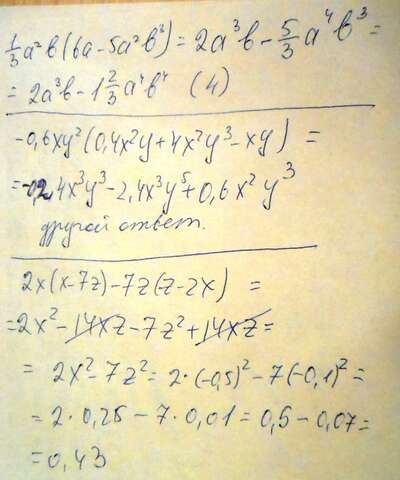 1/3 a²b(6a-5a²b³) = 2a³b - 5/3 a⁴b³ =
= 2a³b - 1 2/3 a⁴b⁴ (4)
-0,6xy²(0,4x²y+4x²y³-xy) =
=-0,2,4x³y³-2,4x³y⁵+0,6x²y³
другой ответ.
2x(x-7z)-7z(z-2x) =
=2x²-14xz-7z²+14xz=
= 2x²-7z²=2·(-0,5)²-7(-0,1)²=
= 2·0,25-7·0,01=0,5-0,07=
=0,43